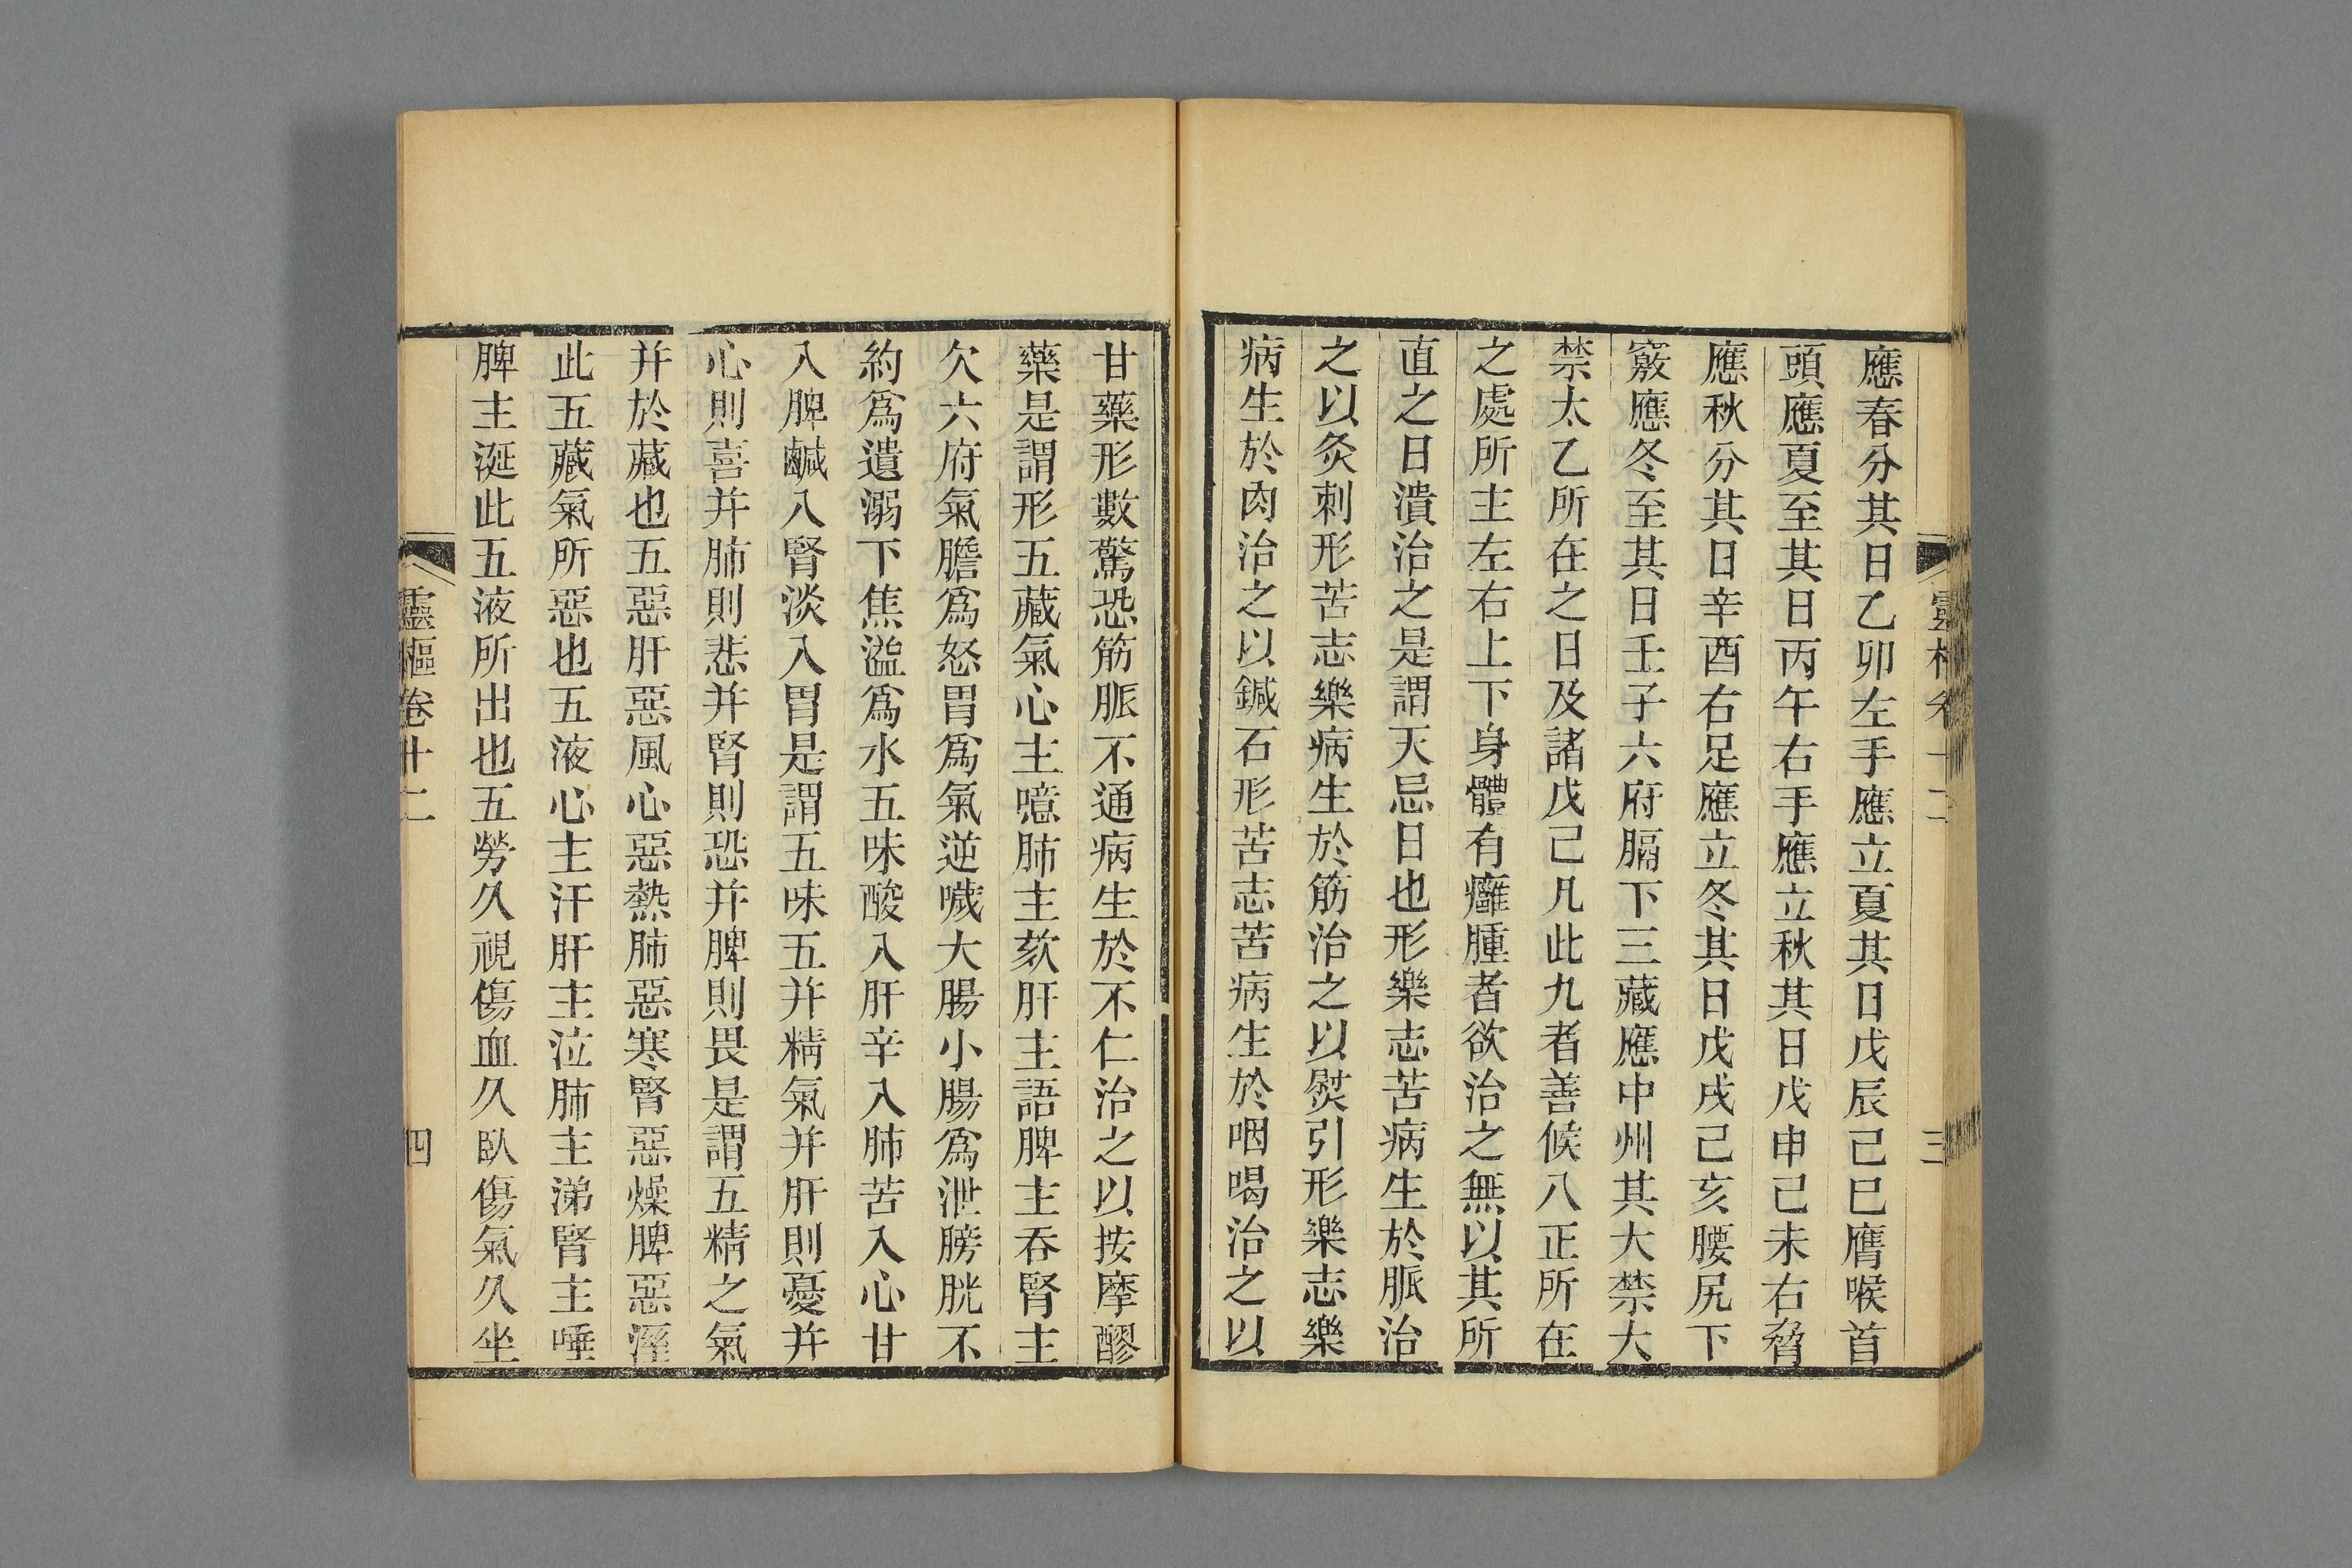 應春分其日乙卯左手應立夏其日戊辰己巳膺喉首
頭應夏至其日丙午右手應立秋其日戊申己未右脅
應秋分其日辛酉右足應立冬其日戊戌己亥腰尻下
竅應冬至其日壬子六府膈下三藏應中州其大禁大
禁太乙所在之日及諸戊己凡此九者善候八正所在
之處所主左右上下身體有癰腫者欲治之無以其所
直之日潰治之是謂天忌日也形樂志苦病生於脈治
之以灸刺形苦志樂病生於筋治之以熨引形樂志樂
病生於肉治之以鍼石形苦志苦病生於咽喝治之以
甘藥形數驚恐筋脈不通病生於不仁治之以按摩醪
藥是謂形五藏氣心主噫肺主欬肝主語脾主吞腎主
欠六府氣膽為怒胃為氣逆噦大腸小腸為泄膀胱不
約為遺溺下焦溢為水五味酸入肝辛入肺苦入心甘
入脾鹹入腎淡入胃是謂五味五并精氣并肝則憂并
心則喜并肺則悲并腎則恐并脾則畏是謂五精之氣
并於藏也五惡肝惡風心惡熱肺惡寒腎惡燥脾惡溼
此五藏氣所惡也五液心主汗肝主泣肺主涕腎主唾
脾主涎此五液所出也五勞久視傷血久臥傷氣久坐
靈樞卷十二
四